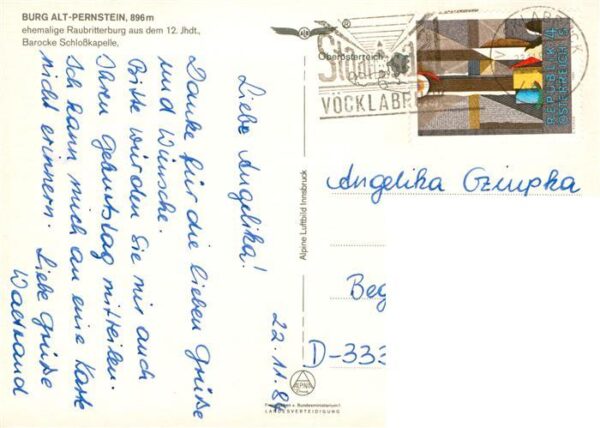 BURG ALT-PERNSTEIN, 896 m
ehemalige Raubritterburg aus dem 12. Jhdt.,
Barocke Schloßkapelle,
Oberösterreich
Liebe Angelika!
Danke für die lieben Grüße
und Wünsche.
Bitte würden Sie mir auch
Ihren Geburtstag mitteilen.
Ich kann mich an eine Karte
nicht erinnern. Liebe Grüße
Waltraud
22.11.86
Alpine Luftbild Innsbruck
VÖCKLABR
REPUBLIK
ÖSTERREICH
Angelika
Beg
D-333
LANDESVERTEIDIGUNG